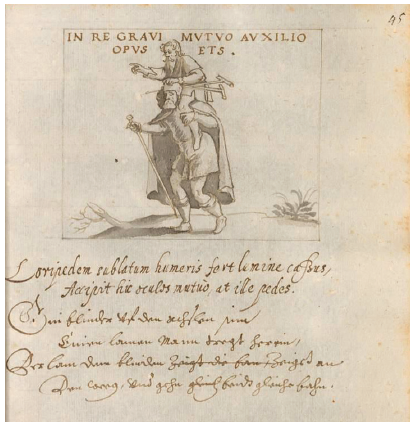 45
IN RE GRAVI MVTVO AVXILIO
OPVS ETS .
Loripedem sublatum humeris fert lumine cassus,
Accipit hic oculos mutuo, at ille pedes.
Ein blinder vf den achslen
Einen lamen Mann tregt herein,
Der lam dem blinden Zeigt die an
Den weeg, vnd gehn gleiche bahn.